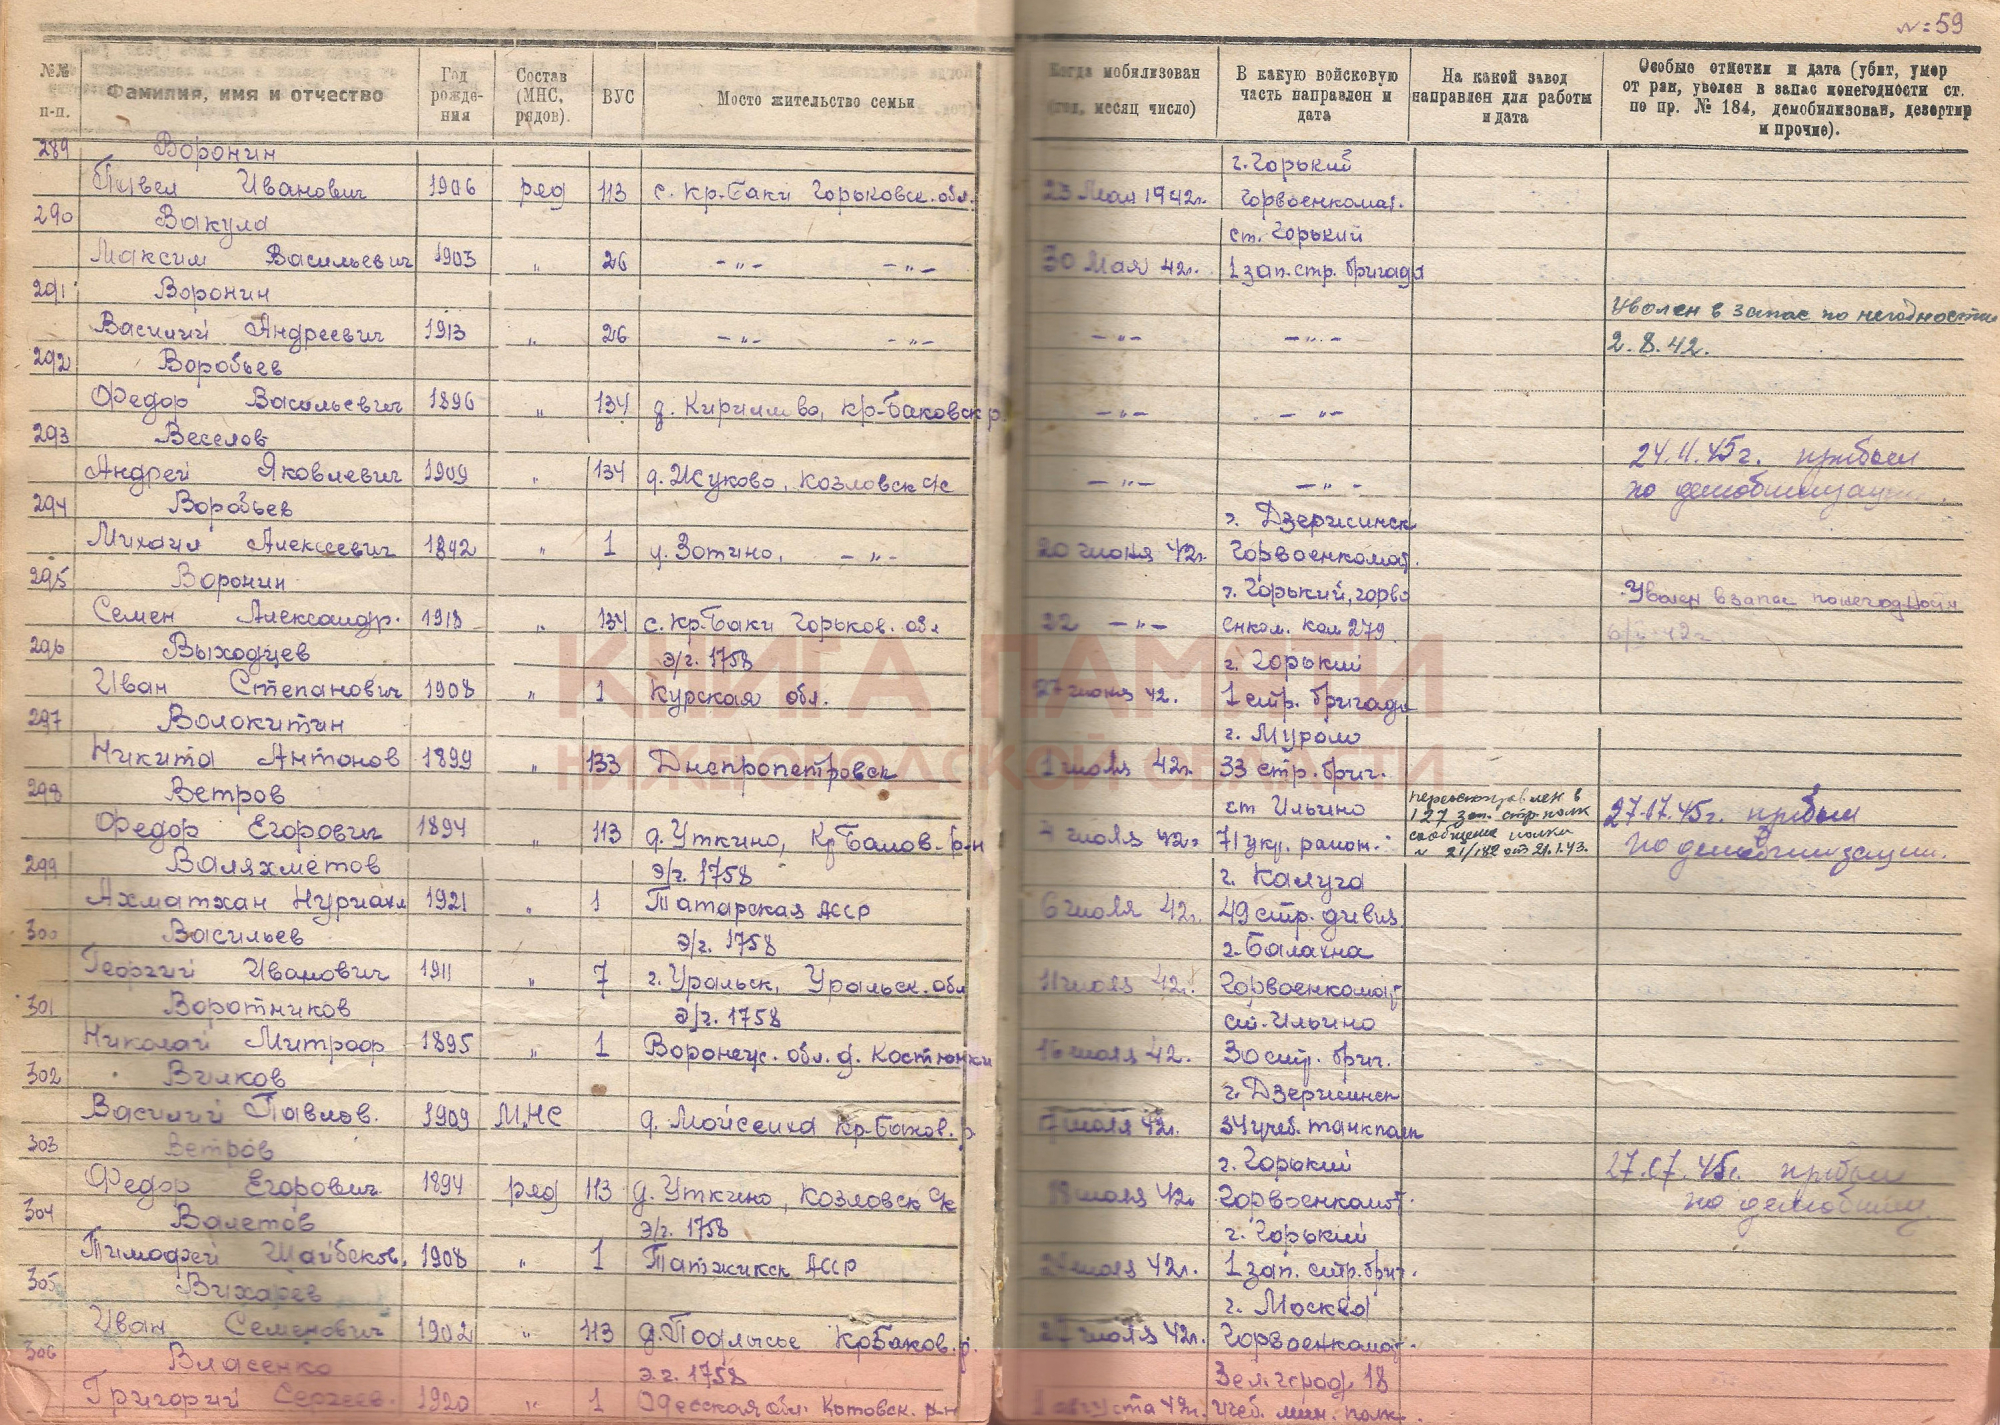 № 59
№№ п-п. Фамилия, имя и отчество Год рожде-ния Состав (МНС, рядов). ВУС Мосто жительство семьи Когда мобилизован (год, месяц число) В какую войсковую часть направлен и дата На какой завод направлен для работы и дата Особые отметки и дата (убит, умер от ран, уволен в запас понегодности ст. по пр. № 184, демобилизован, дезертир и прочие).
289 Воронин г. Горький
Павел Иванович 1906 ряд 113 с. Кр-Баки Горьковск. обл. 23 Мая 1942г. Горвоенкомат.
290 Вакула ст. Горький
Максим Васильевич 1903 „ 26 –„– –„– 30 Мая 42г. 1 зап. стр. бригада
291 Воронин Уволен в запас по негодности
Василий Андреевич 1913 „ 26 –„– –„– –„– –„– 2.8.42.
292 Воробьев
Федор Васильевич 1896 „ 134 д. Кирилово, Кр-Баковск р. –„– –„–
293 Веселов 24.11.45г. прибыл
Андрей Яковлевич 1909 „ 134 д. Жуково, Козловск с/с –„– –„– по демобилизации.
294 Воробьев г. Дзержинск
Михаил Алексеевич 1892 „ 1 д. Зотино, –„– 20 июня 42г. Горвоенкомат.
295 Воронин г. Горький, горво Уволен в запас
Семен Александр. 1918 „ 134 с. Кр-Баки Горьков. обл 22 –„– енком. ком 279
296 Выходцев э/г. 1758 г. Горький
Иван Степанович 1908 „ 1 Курская обл. 27 июня 42. 1 стр. бригада
297 Волокитин г. Муром
Никита Антонов 1899 „ 133 Днепропетровск 1 июля 42г. 33 стр. бриг.
298 Ветров ст Ильино 127 зап. стр. полк 27.07.45г. прибыл
Федор Егорович 1894 „ 113 д. Уткино, Кр Баков. р-н 4 июля 42г. 71 укр. район. сообщение полка № 21/182 от 21.1.43. по демобилизации.
299 Валяхметов э/г. 1758 г. Калуга
Ахматхан 1921 „ 1 Татарская АССР 6 июля 42г. 49 стр. дивиз
300 Васильев э/г. 1758 г. Балахна
Георгий Иванович 1911 „ 7 г. Уральск, Уральск. обл 11 июля 42г. Горвоенкомат
301 Воротников э/г. 1758 ст. Ильино
Николай Митроф 1895 „ 1 Воронеж. обл. д. 16 июля 42. 30 стр. бриг.
302 Вилков г. Дзержинск
Василий Павлов. 1909 МНС д. Мойсеиха Кр-Баков. р. 17 июля 42г. 34 учеб. танк полк
303 Ветров г. Горький 27.07.45г. прибыл
Федор Егорович 1894 ряд 113 д. Уткино, Козловск с/с 18 июля 42г Горвоенкомат. по демобилиз.
304 Валетов э/г. 1758 г. Горький
Тимофей 1908 „ 1 Таджикск АССР июля 42г. 1 зап. стр. бриг.
305 Вихарев г. Москва
Иван Семенович 1902 „ 113 д. Подлысье КрБаков. р. 27 июля 42г. Горвоенкомат.
306 Власенко э.г. 1758 18
Григорий Сергеев. 1920 „ 1 Одесская обл. Котовск. р-н 1 августа 42г. учеб. мин. полк.
КНИГА ПАМЯТИ
НИЖЕГОРОДСКОЙ ОБЛАСТИ